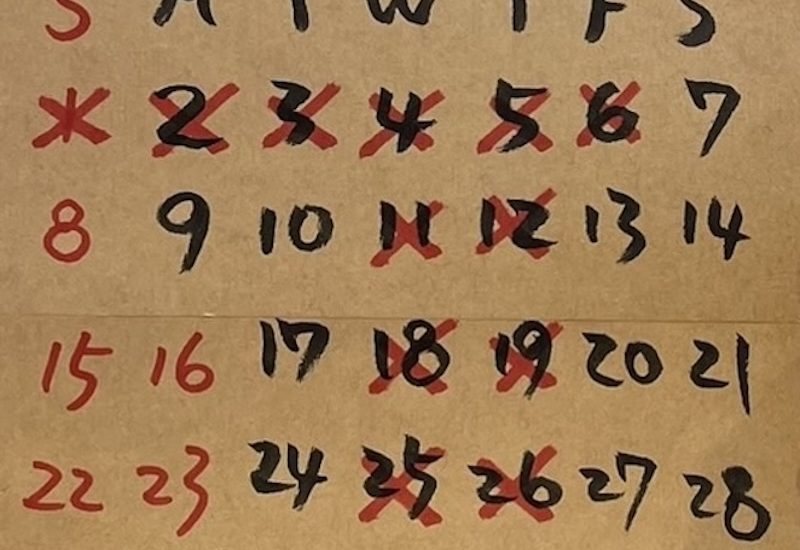 S M T W T F S
1 2 3 4 5 6 7
8 9 10 11 12 13 14
15 16 17 18 19 20 21
22 23 24 25 26 27 28